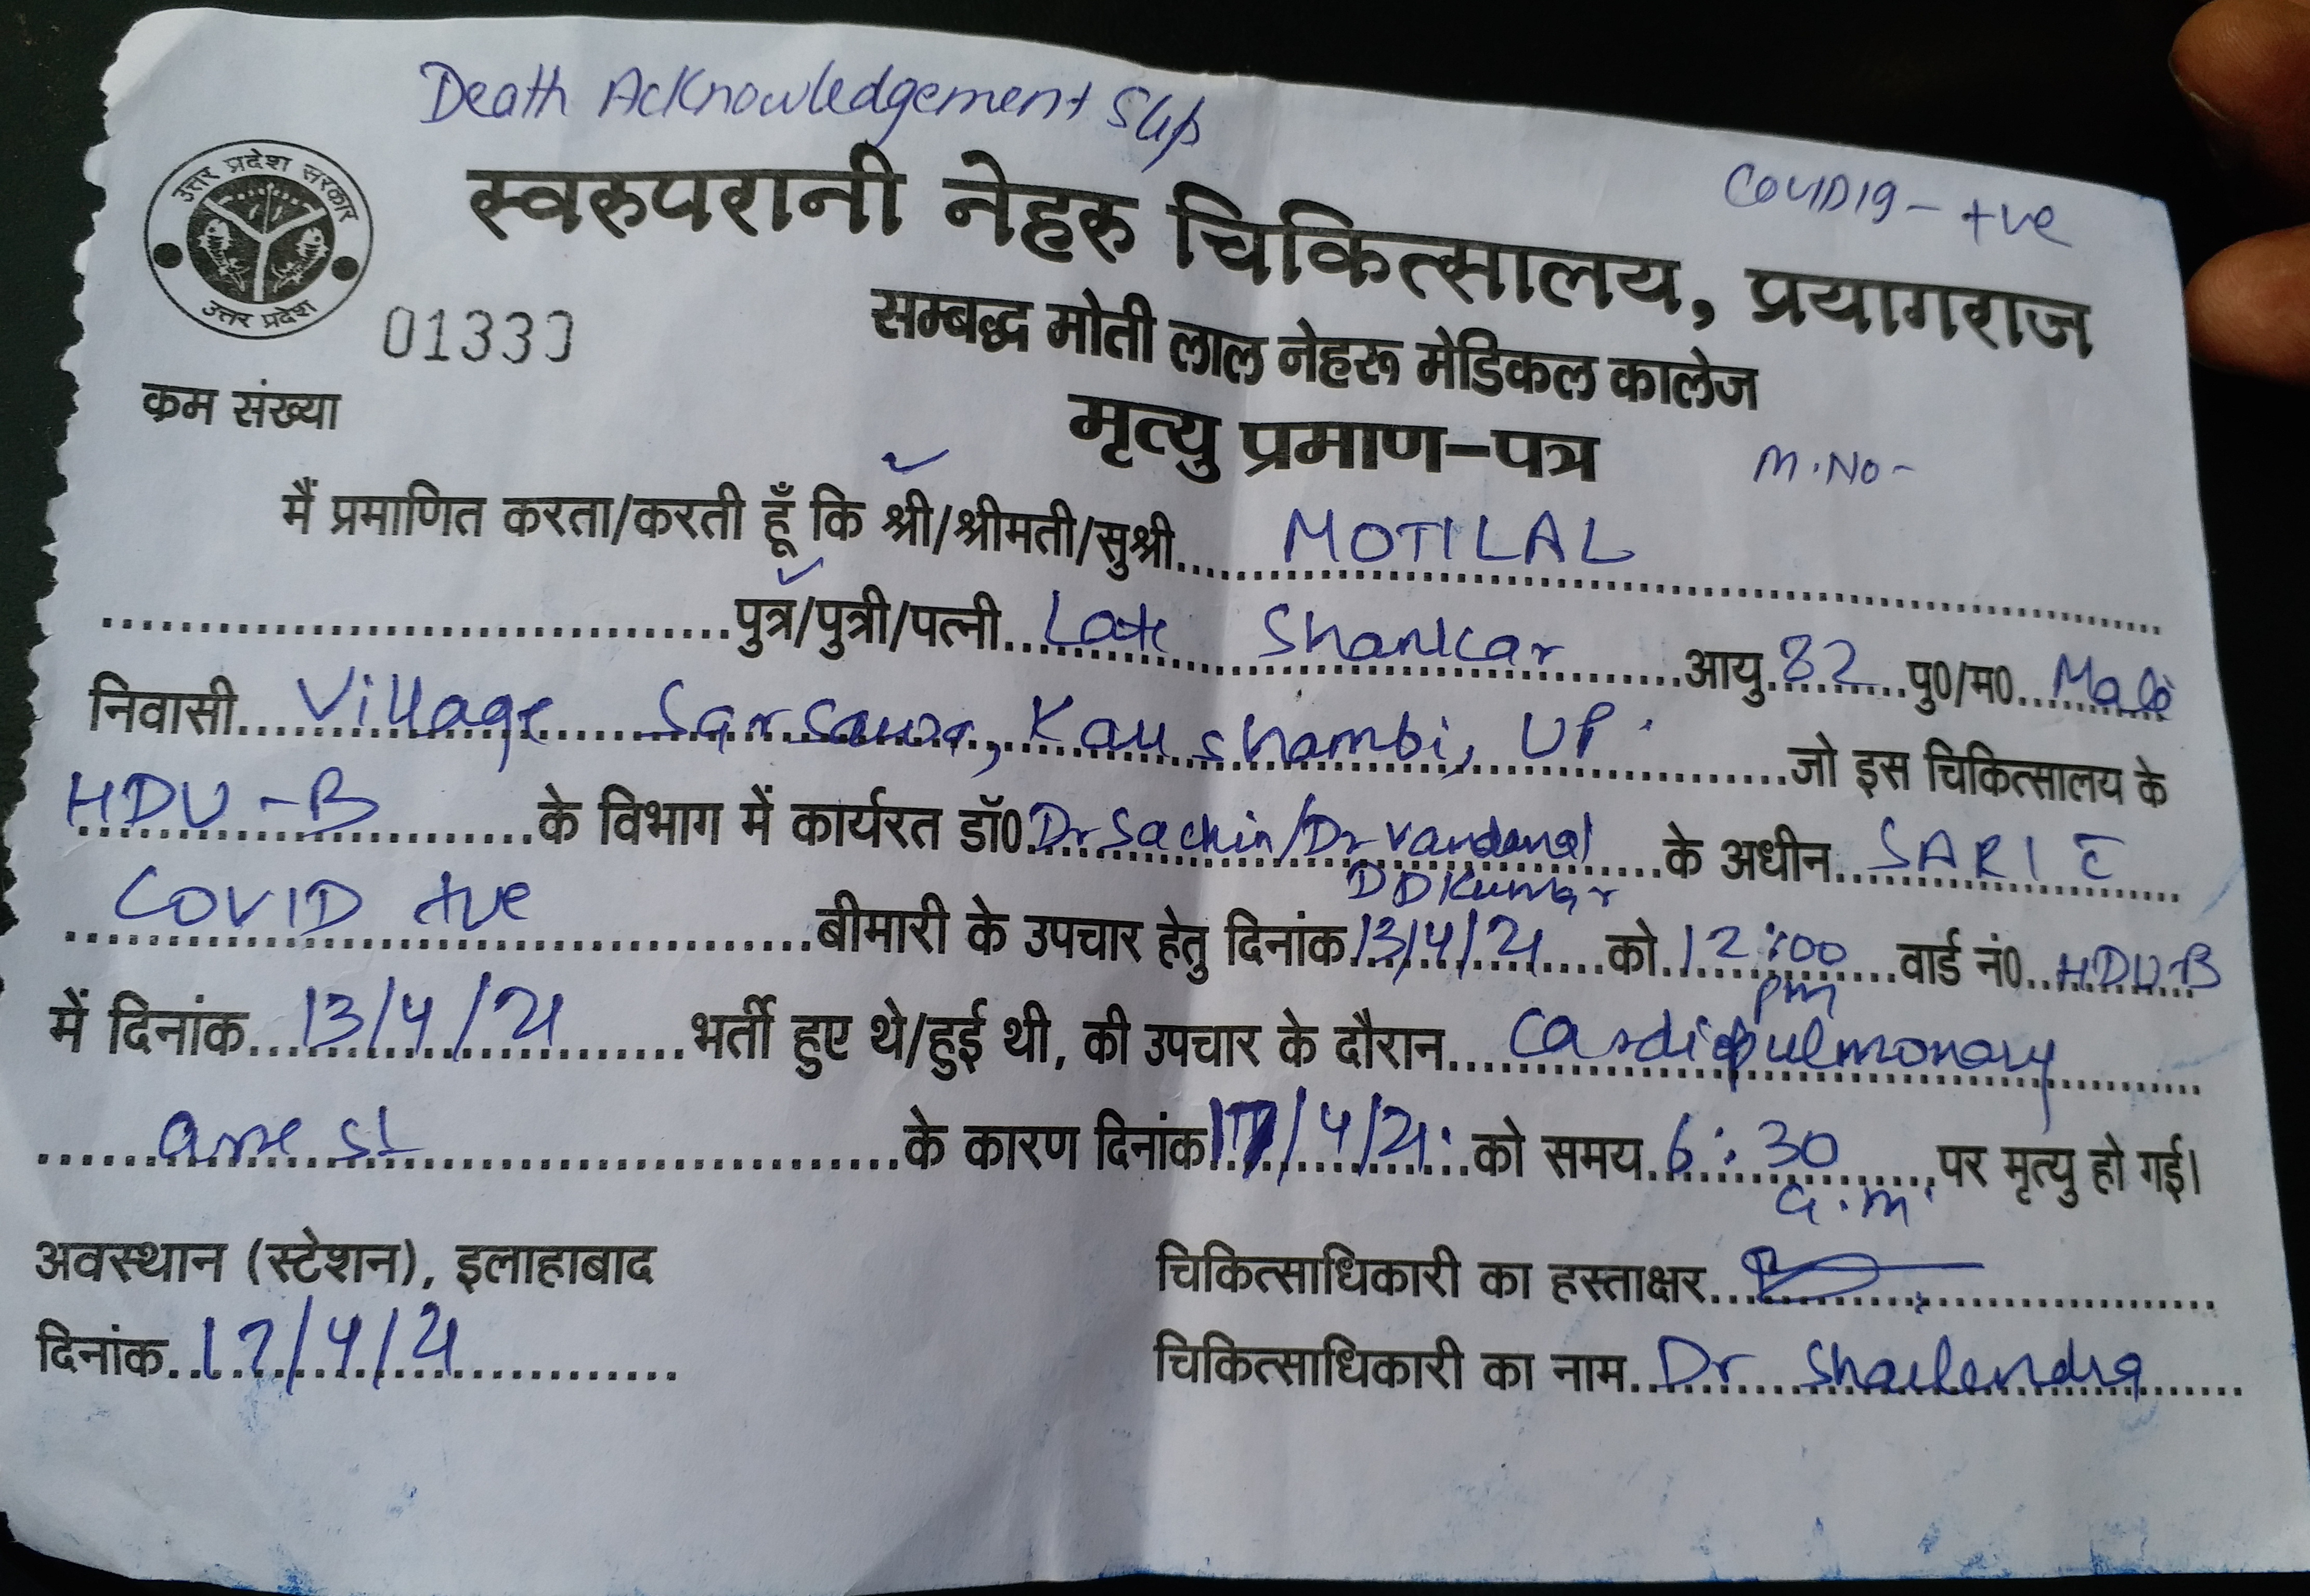 Death Acknowledgement Slip
COVID19 - +ve
उत्तर प्रदेश सरकार
उत्तर प्रदेश
स्वरुपरानी नेहरु चिकित्सालय, प्रयागराज
सम्बद्ध मोती लाल नेहरू मेडिकल कालेज
क्रम संख्या 01330
मृत्यु प्रमाण-पत्र
M.No-
मैं प्रमाणित करता/करती हूँ कि श्री/श्रीमती/सुश्री MOTILAL
पुत्र/पुत्री/पत्नी Late Shankar आयु 82 पु0/म0 Male
निवासी Village Sarsawa, Kaushambi, UP. जो इस चिकित्सालय के
HDU-B के विभाग में कार्यरत डॉ0 Dr Sachin/Dr Vandana/ के अधीन SARI c̄
DD Kumar
COVID +ve बीमारी के उपचार हेतु दिनांक 13/4/21 को 12:00 वार्ड नं0 HDU-B
pm
में दिनांक 13/4/21 भर्ती हुए थे/हुई थी, की उपचार के दौरान Cardiopulmonary
arrest के कारण दिनांक 17/4/21 को समय 6:30 पर मृत्यु हो गई।
a.m.
अवस्थान (स्टेशन), इलाहाबाद
चिकित्साधिकारी का हस्ताक्षर
दिनांक 17/4/21
चिकित्साधिकारी का नाम Dr Shailendra